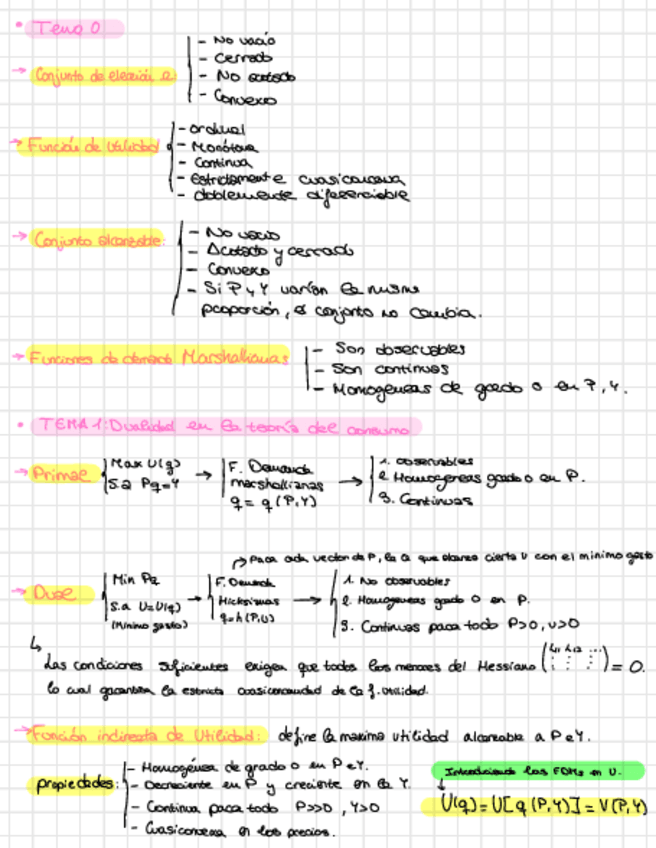 • Tema 0
→ Conjunto de elección Q:
- No vacío
- Cerrado
- No acotado
- Convexo
→ Función de Utilidad
- ordinal
- Monótona
- Continua
- Estrictamente cuasiconcava
- doblemente diferenciable
→ Conjunto alcanzable:
- No vacío
- Acotado y cerrado
- Convexo
- Si P y Y varían en la misma
proporción, el conjunto no cambia.
→ Funciones de demanda Marshallianas
- Son observables
- Son continuas
- Homogéneas de grado 0 en P, Y.
• TEMA 1: Dualidad en la teoría del consumo
→ Primal
Max U(q)
S.a Pq=Y
→ F. Demanda
marshallianas
q = q (P,Y)
→ 1. observables
2. Homogéneas grado 0 en P.
3. Continuas
→ Para cada vector de P, la Q que alcanza cierta U con el mínimo gasto
→ Dual
Min Pq
S.a U=U(q)
(Mínimo gasto)
→ F. Demanda
Hicksianas
q=h(P,U)
→ 1. No observables
2. Homogéneas grado 0 en P.
3. Continuas para todo P>0, U>0
↳ Las condiciones suficientes exigen que todos los menores del Hessiano = 0.
lo cual garantiza la estricta cuasiconcavidad de la f. utilidad.
→ Función indirecta de Utilidad: define la maxima utilidad alcanzable a P e Y.
propiedades:
- Homogénea de grado 0 en P e Y.
- Decreciente en P y creciente en la Y.
- Continua para todo P>>0, Y>0
- Cuasiconvexa en los precios.
Introduciendo las FDMs en U.
U(q) = U[q (P,Y)] = V(P,Y)